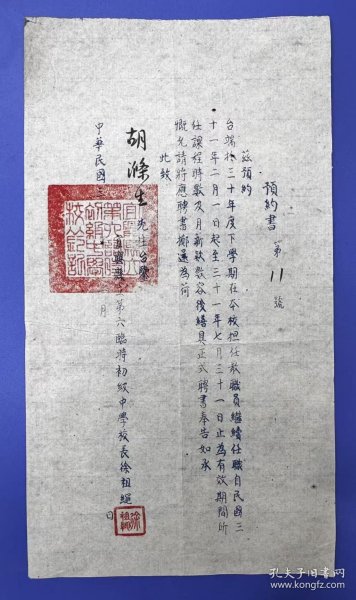 預約書 第11號
茲預約
台端於三十年度下學期在本校担任教職員繼續任職自民國三
十一年二月一日起至三十一年七月三十一日止為有效期間所
任課程時數及月薪數欵容後繕具正式聘書奉告如承
慨允請將應聘書擲還為荷
此致
胡滌生先生台鑒
第六臨時初級中學校長徐祖繩
中華民國三 月 日
孔夫子旧书网